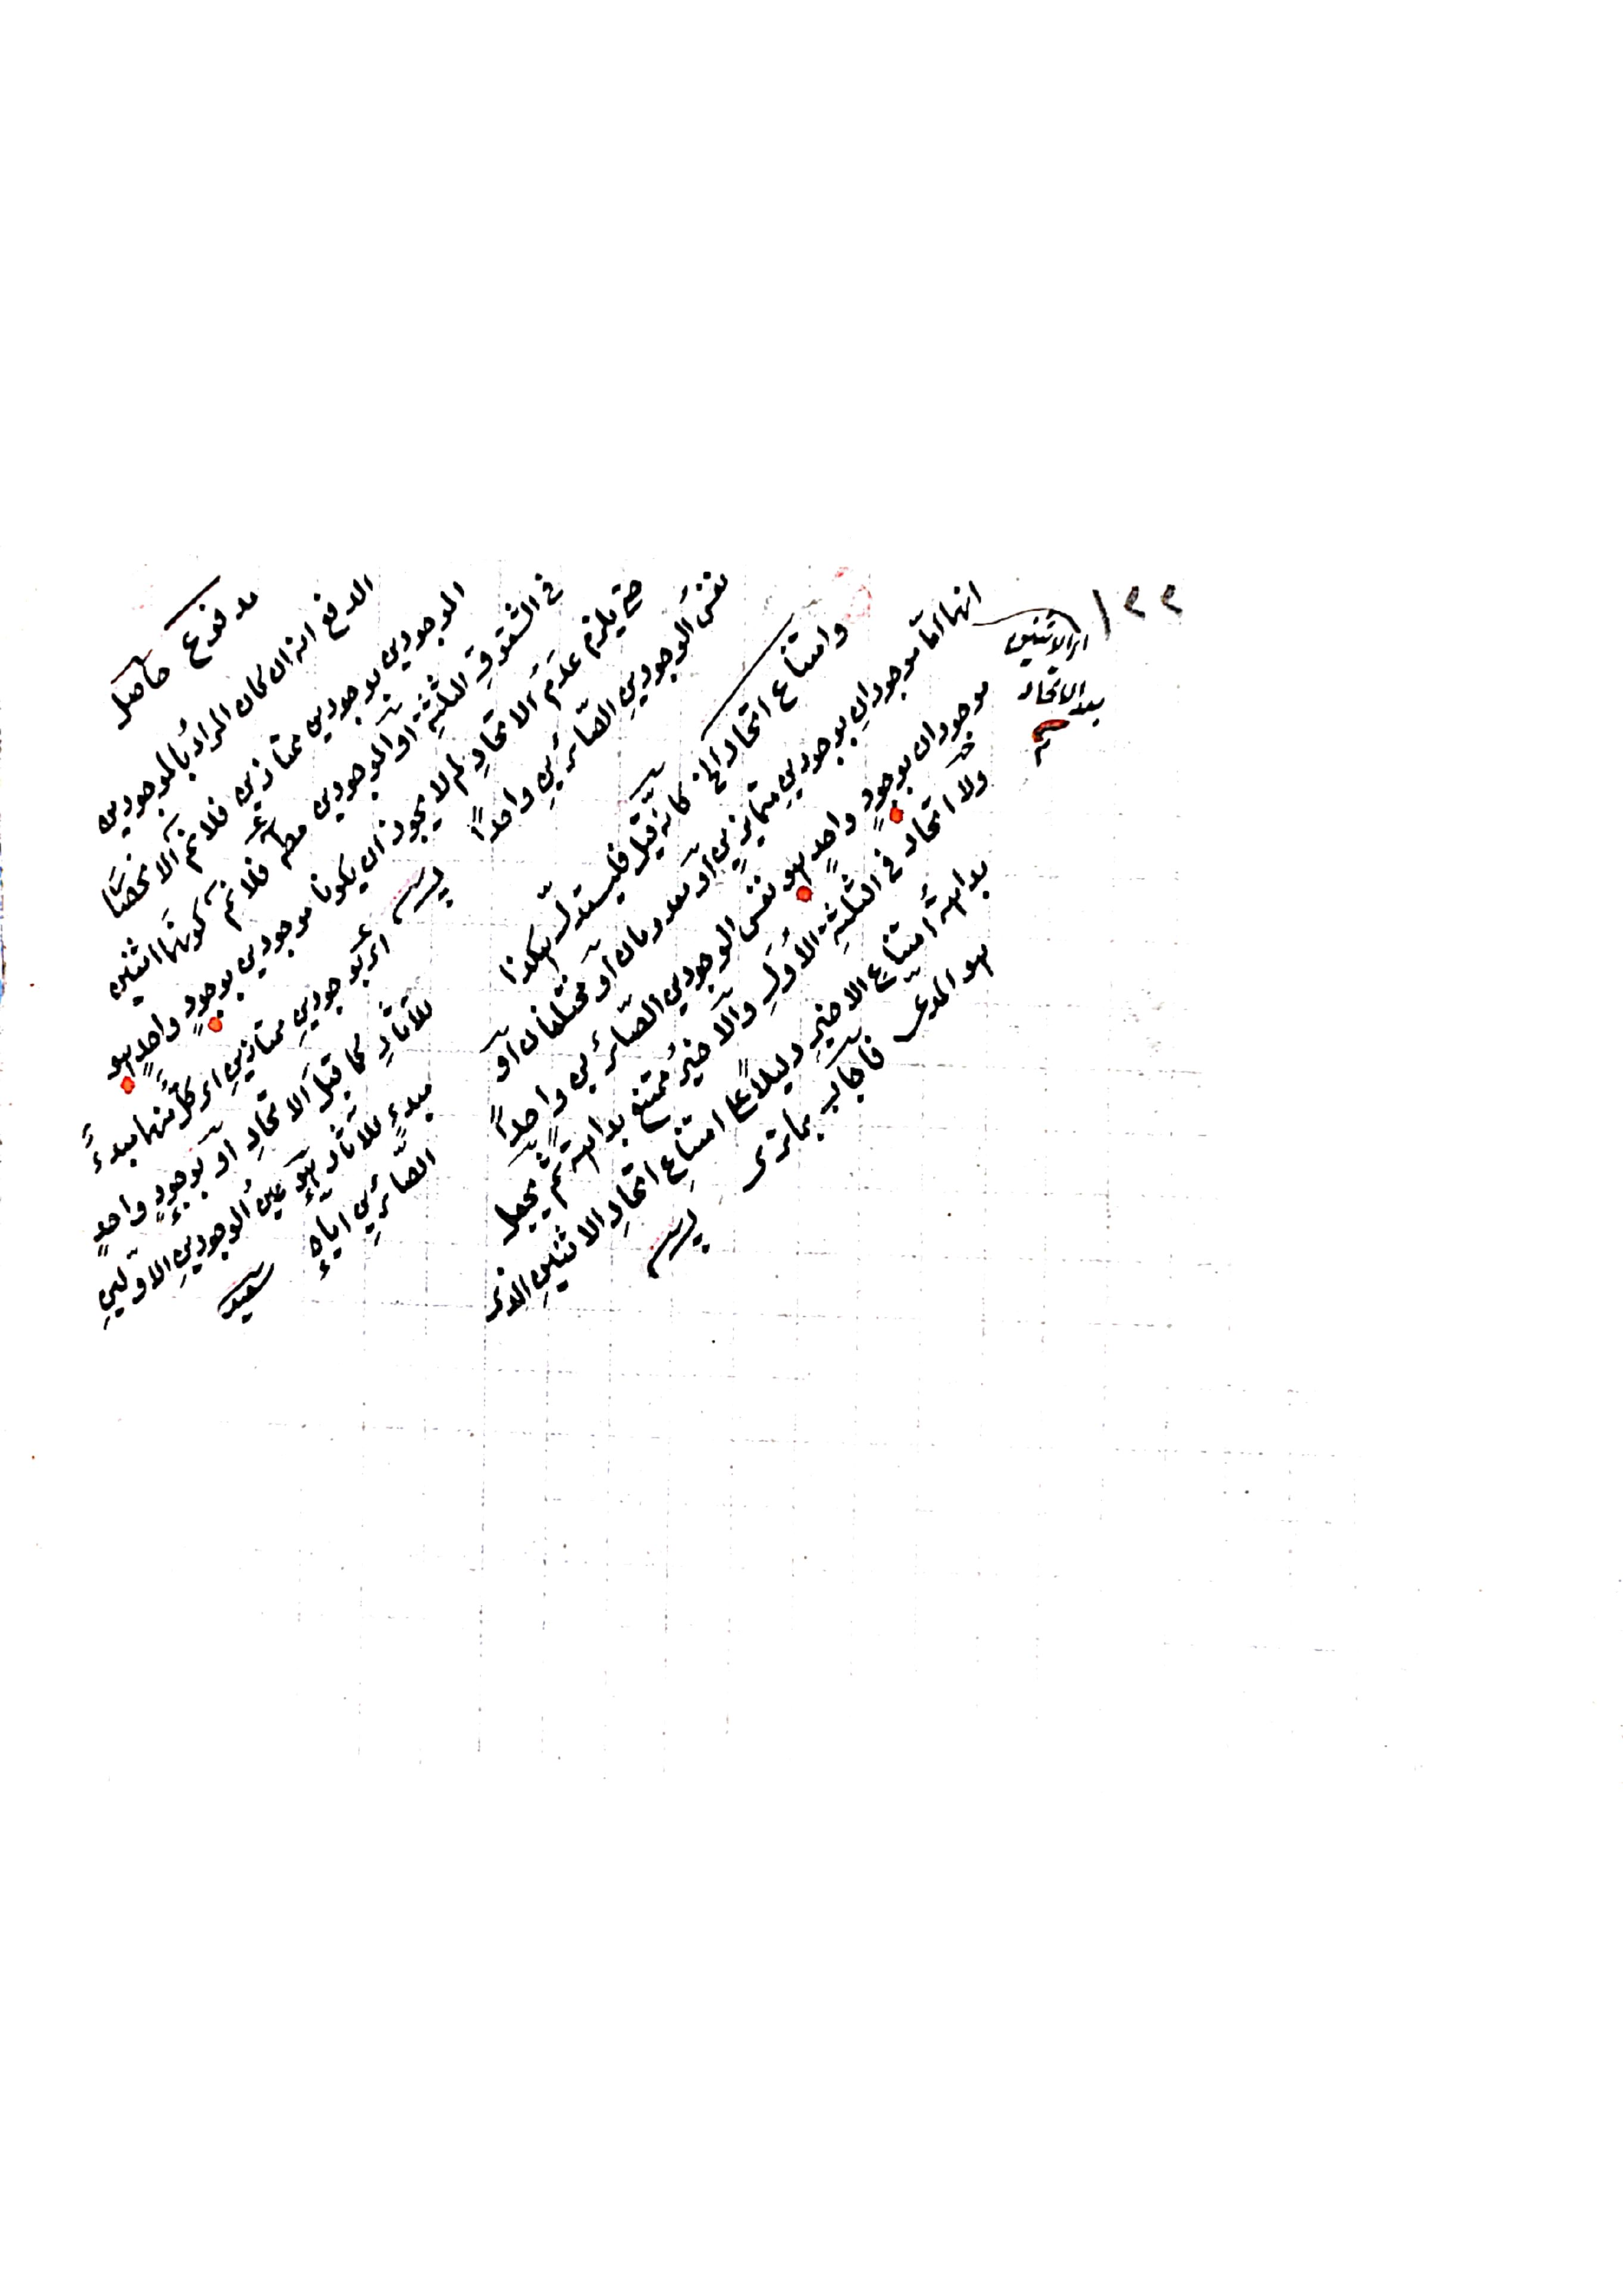 ١٢٢
اى الاثنين
بعد الاتحاد
وامتناع اتحاد الخ كانه قيل فليستدل هكذا
انهما اما موجودان بوجودين متمايزين او معدومان او مختلفان او
موجودان بوجودٍ واحدٍ هو نفس الوجودين الصائرين واحداً
ولا اتحاد فى الثلثةِ الاُوَلِ والاخيرُ ممتنع بداهةً ثم يجعل
بداهةُ امتناعِ الاخيرِ دليلاً على امتناعِ اتحادِ الاثنينِ الذى
هو المدعى فاجاب بما ترى
مدفوع حاصل
الدفع انه ان كان المرادُ بالموجودين
الموجودين بوجودين ممتازين فلانم الانحصار
فى الشقوقِ الثلثةِ او الموجودين مط فلانم كونهما اثنين
ح يلزم عدمُ الاتحادِ لم لا يجوز ان يكونا موجودين بوجودٍ واحدٍ هو
نفسُ الوجودينِ الصّائرَينِ واحداً
اى بوجودينِ ممتازينِ اى كل منهما مبدءً
للآثارِ كما قبلَ الاتحادِ او بوجودٍ واحدٍ
مبدءٍ للآثار هو عينُ الوجودينِ الاولينِ
الصّائرينِ اياه
سعيد